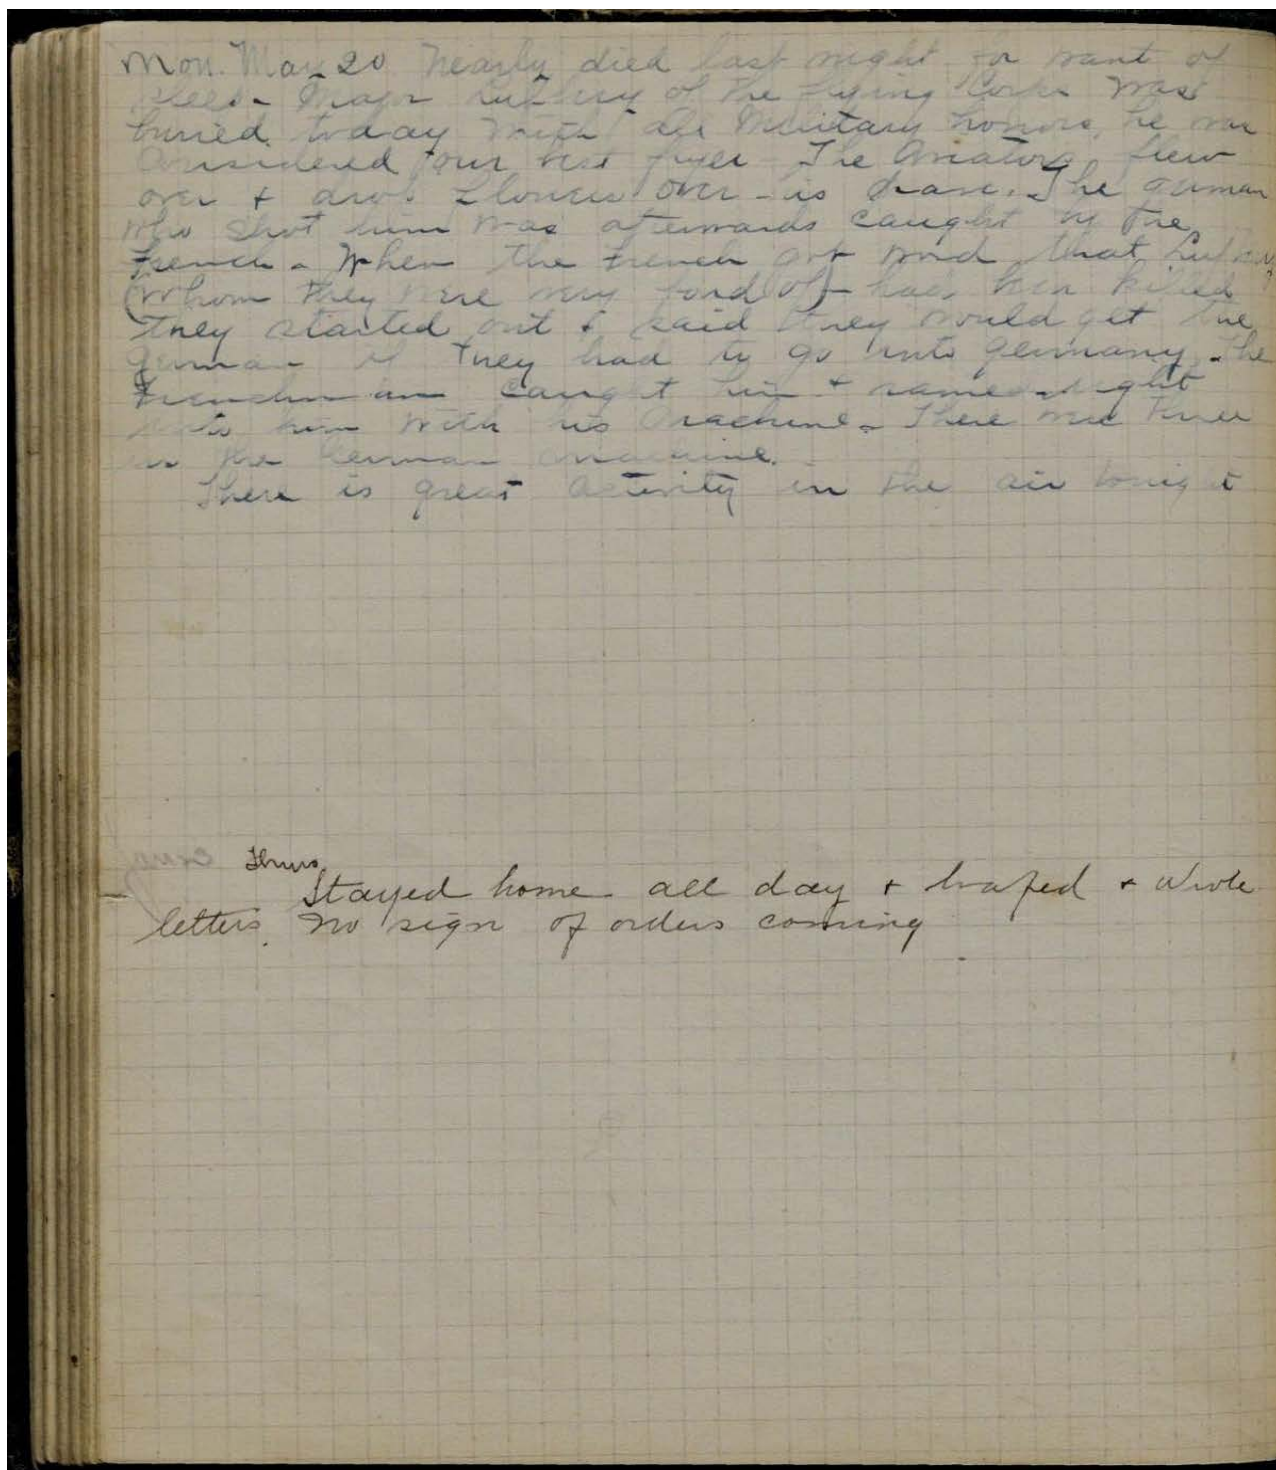 Mon. May 20 Nearly died last night for want of
sleep - Major Lufbery of the Flying Corps was
buried today with all Military honors, he was
considered our best flyer - The Aviators flew
over & drop flowers over - is grave. The German
who shot him was afterwards caught by the
French - When the French got word that Lufbery
(whom they were very fond of) had been killed
they started out & said they would get the
German if they had to go into Germany - The
Frenchman caught him & same night
him with his machine - There were three
in the German machine.
There is great activity in the air tonight
Thurs
Stayed home all day & loafed & wrote
letters. No sign of orders coming